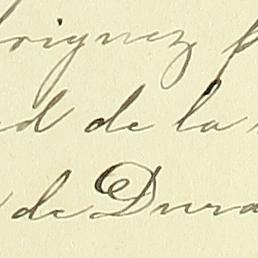 rignez f
d de la
de Dura